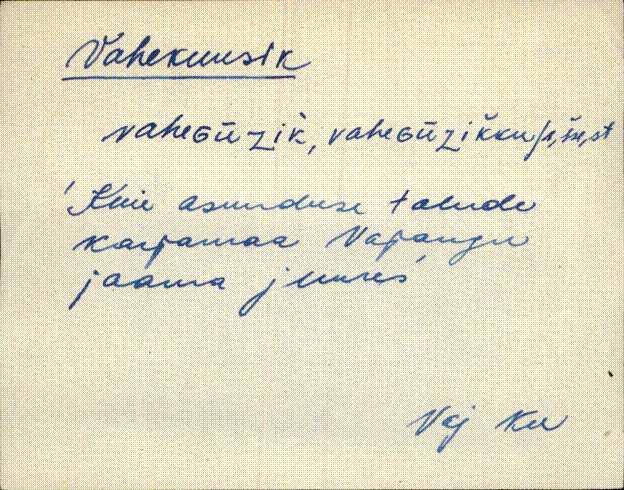 Vahekuusik
vaheGūzìk, vaheGūzikku
asunduse talude
karjamaa Vajangu
jaama juures'
Vaj Ku